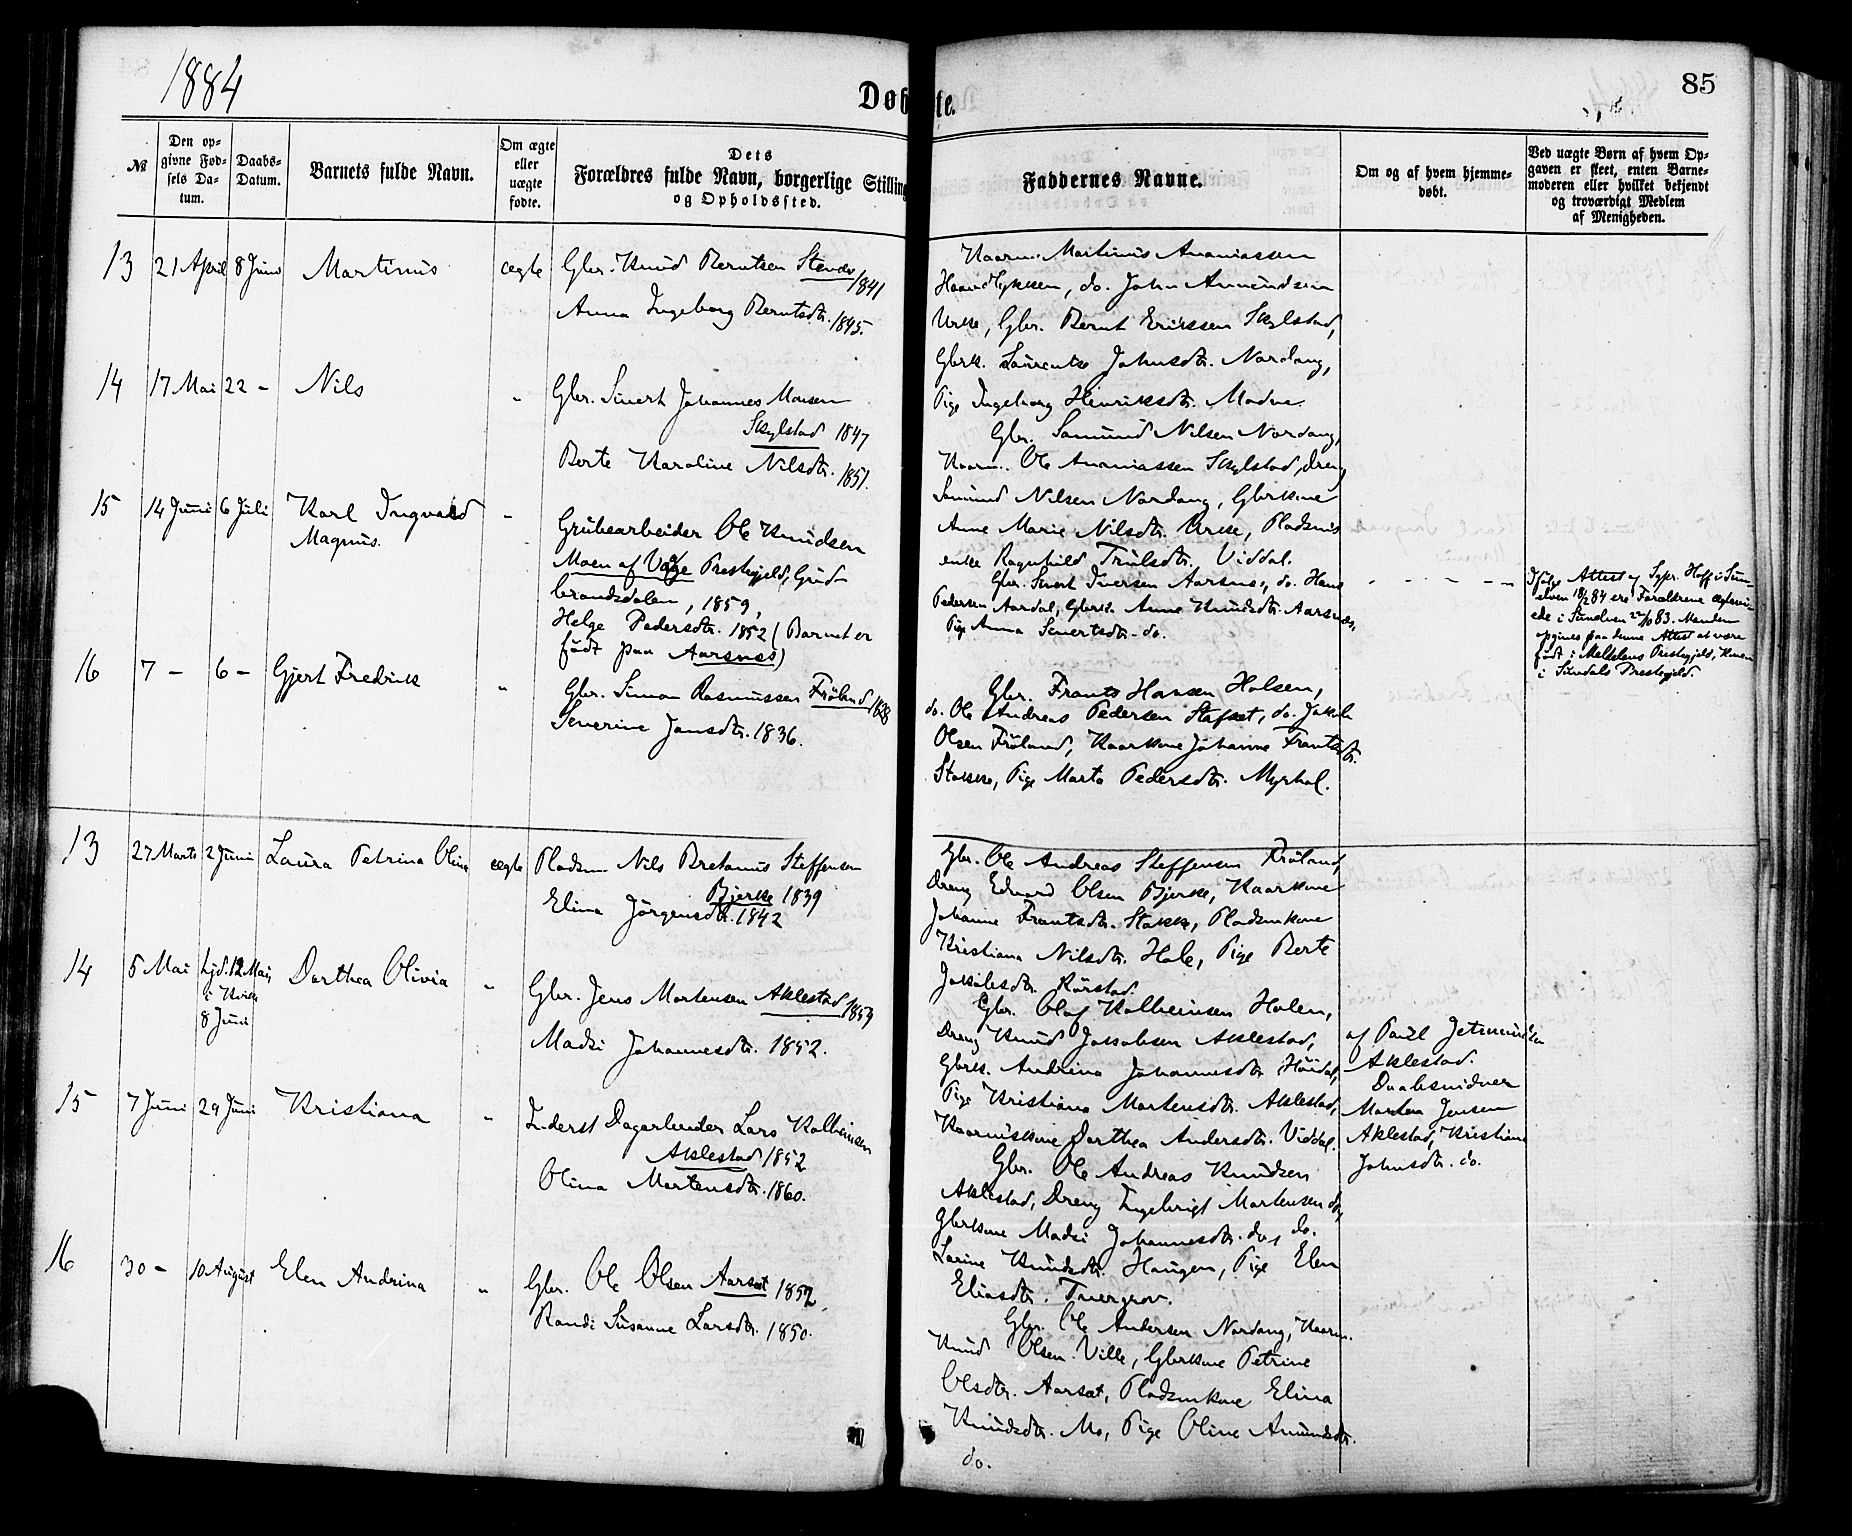 1884
Døbte.
85
№
Den opgivne Fødsels Datum.
Daabs-Datum.
Barnets fulde Navn.
Om ægte eller uægte fødte.
Dets Forældres fulde Navn, borgerlige Stilling og Opholdssted.
Faddernes Navne.
Om og af hvem hjemmedøbt.
Ved uægte Børn af hvem Opgaven er skeet, enten Barnemoderen eller hvilket bekjendt og troværdigt Medlem af Menigheden.
13 21 April 8 Juni Martinus ægte
Gbr. Knud Berntsen 1841
Anna Ingeborg Berntsdtr. 1845.
Kaarm. Martinus Ananiassen
do. John Amundsen
Urke, Gbr. Bernt Erikssen Skylstad,
Gbrk. Laurentse Johnsdtr. Nordang,
Pige Ingeborg Henriksdtr.
14 17 Mai 22 – Nils „
Gbr. Sivert Johannes Monsen
Skylstad 1847
Berte Karoline Nilsdtr. 1851.
Gbr. Samund Nilsen Nordang,
Kaarm. Ole Ananiassen Skylstad, Dreng
Samund Nilsen Nordang, Gbrkone
Anne Marie Nilsdtr. Urke, Pladsmis
enke Ragnhild Trulsdtr. Viddal.
15 14 Juni 6 Juli Karl Ingvald
Magnus.
Grubearbeider Ole Knudsen
Moen af Vaage Prestegjeld, Gud-
brandsdalen, 1859,
Helge Pedersdtr. 1852 (Barnet er
født paa Aarsnes)
Gbr. Sivert Iversen Aarsnes, do. Hans
Pedersen Aardal, Gbrk. Anne Knudsdtr. Aarsnes,
Pige Anna Sivertsdtr. do.
Ifølge Attest af Sgpr. Hoff i Sun-
elven 18/2 84 ere Forældrene ægtevi-
ede i Sunelven 83. Manden
opgives paa denne Attest at være
født i Prestegjeld, Konen
i Sundals Prestegjeld.
16 7 – 6 – Gjert Fredrik „
Gbr. Simon Rasmussen Frøland 1828
Severine Jansdtr. 1836.
Gbr. Frants Hansen Holsen,
do. Ole Andreas Pedersen Stafset, do. Jakob
Olsen Frøland, Kaarkone Johanne Frantsdtr.
Stokke, Pige Marta Pedersdtr. Myrhol.
13 27 Marts 2 Juni Laura Petrina Olina ægte
Pladsm. Nils Bretanus Steffensen
Bjerke 1839
Elina Jørgensdtr. 1842
Gbr. Ole Andreas Steffensen Frøland,
Dreng Edvard Olsen Bjerke, Kaarkone
Johanne Frantsdtr. Stokke, Pladsmkone
Kristiana Nilsdtr. Hole, Pige Berte
Jakobsdtr. Rørstad.
14 5 Mai hjd. 12 Mai,
i Kirke
8 Juni
Dorthea Olivia „
Gbr. Jens Mortensen Aklestad 1853
Madsi Johannesdtr. 1852.
Gbr. Olaf Kolbeinsen Holen,
Dreng Knud Jakobsen Aklestad,
Gbrk. Andrina Johannesdtr. Høidal,
Pige Kristiana Mortensdtr. Aklestad,
Kaarmskone Dorthea Andersdtr. Viddal.
af Paul Jetmundsen
Aklestad.
Daabsvidner
Morten Jensen
Aklestad, Kristiane
Johnsdtr. do.
15 7 Juni 29 Juni Kristiana „
Inderst Dagarbeider Lars Kolbeinsen
Aklestad 1852
Olina Mortensdtr. 1860.
Gbr. Ole Andreas Knudsen
Aklestad, Dreng Ingebrigt Mortensen do,
Gbrkone Madsi Johannesdtr. do, do.
Larine Knudsdtr. Haugen, Pige Elen
Eliasdtr. Tuergrov.
16 30 – 10 August Elen Andrina „
Gbr. Ole Olsen Aarset 1852,
Randi Susanne Larsdtr. 1850.
Gbr. Ole Andersen Nordang, Kaarm.
Knud Olsen Ville, Gbrkone Petrine
Olsdtr. Aarset, Pladsmkone Elina
Knudsdtr. Mo, Pige Oline Amundsdtr.
do.